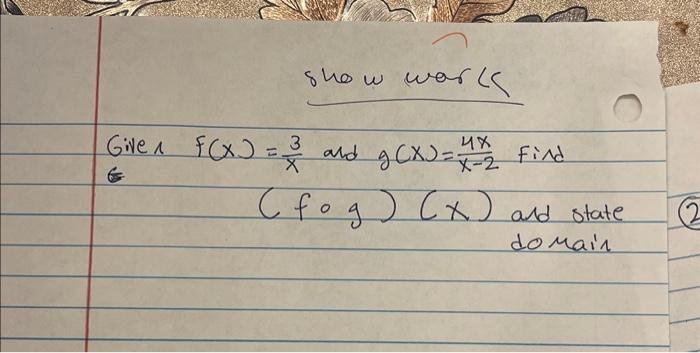 show work
Given f(x) = 3/x and g(x) = 4x/x-2 Find
(f∘g)(x) and state
domain
2